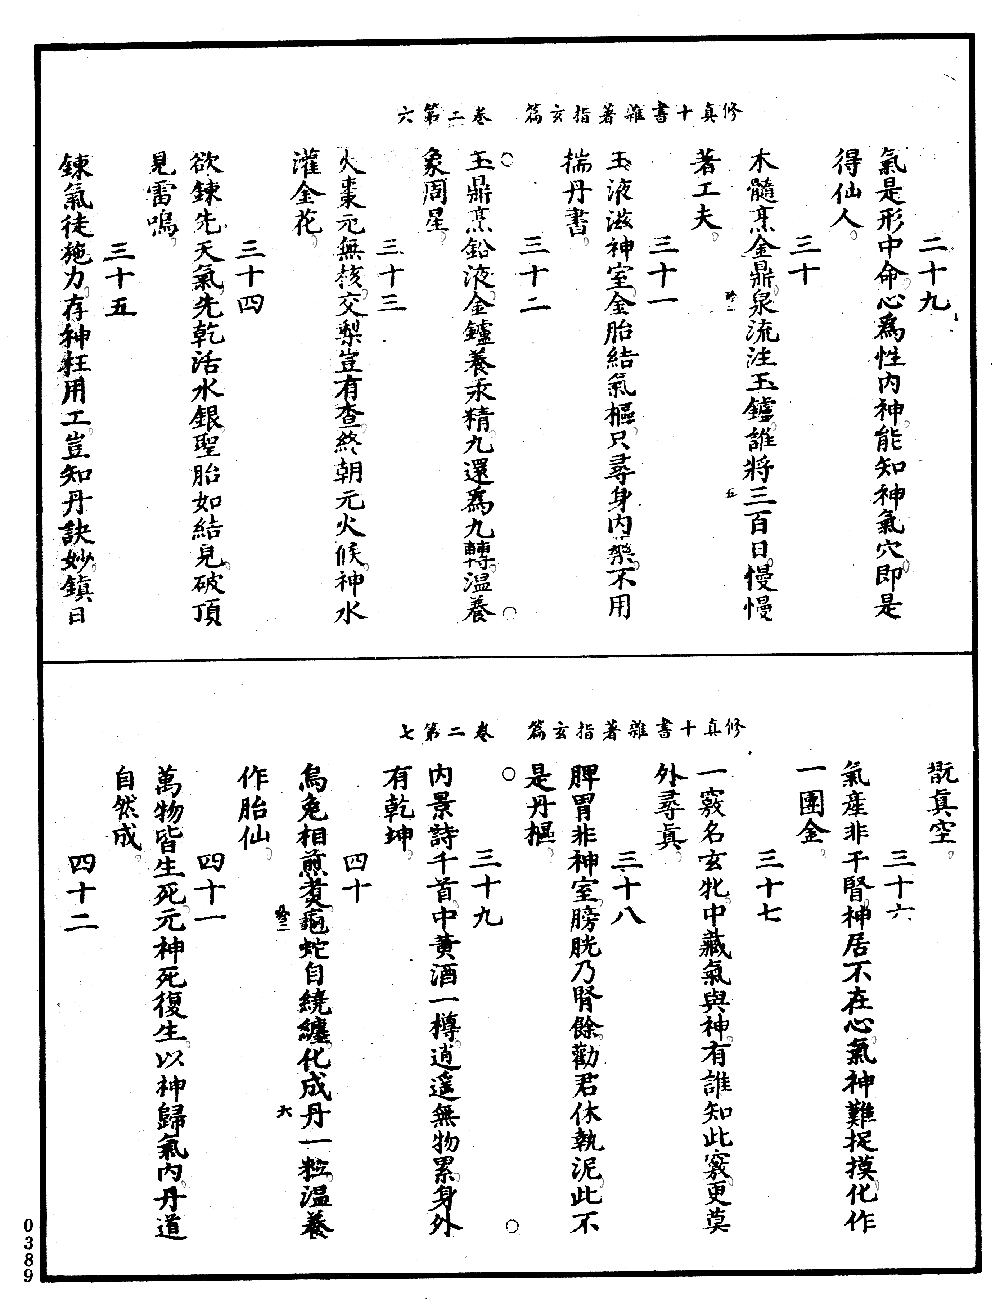 修真十書雜著指玄篇　卷二第六
二十九
氣是形中命心爲性內神能知神氣穴即是
得仙人
三十
木髓烹金鼎泉流注玉鑪誰將三百日慢慢
著工夫
三十一
玉液滋神室金胎結氣樞只尋身內藥不用
揣丹書
三十二
○玉鼎烹鉛液金鑪養汞精九還爲九轉溫養○
象周星
三十三
火棗元無核交梨豈有查終朝元火候神水
灌金花
三十四
欲鍊先天氣先乾活水銀聖胎如結見破頂
見雷鳴
三十五
鍊氣徒施力存神枉用工豈知丹訣妙鎮日
修真十書雜著指玄篇　卷二第七
翫真空
三十六
氣產非干腎神居不在心氣神難捉摸化作
一團金
三十七
一竅名玄牝中藏氣與神有誰知此竅更莫
外尋真
三十八
脾胃非神室膀胱乃腎餘勸君休執泥此不
是丹樞
三十九
○內景詩千首中黃酒一樽逍遥無物累身外○
有乾坤
四十
烏兔相煎煑龜蛇自繞纏化成丹一粒溫養
作胎仙
四十一
萬物皆生死元神死復生以神歸氣內丹道
自然成
四十二
0389